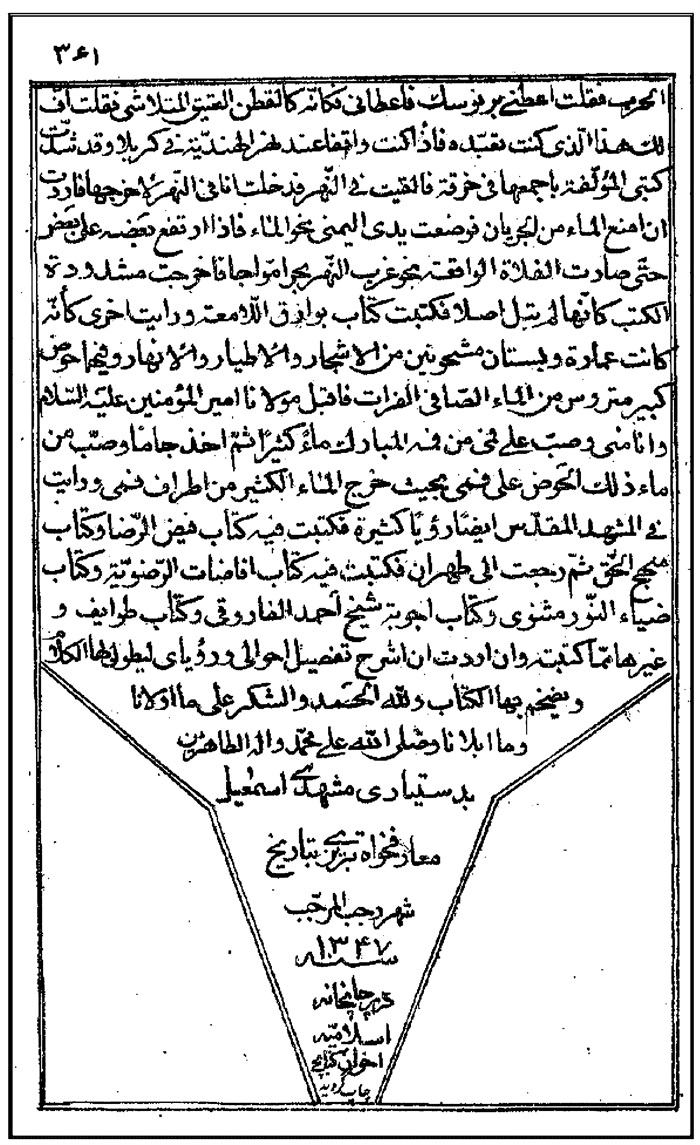 ۳۶۱
الحرب فقلت اعطنى برنوسك فاعطانى فكانّه كالقطن العتيق المتلاشى فقلت افّ
لك هذا الّذى كنت تعبّده فأذا كنت واقفا عند نهر الهنديّة فى كربلا وقد شدّت
كتبى المؤلّفة باجمعها فى خرقة فالقيت فى النّهر فدخلت انا فى النّهر لاخرجها فاردت
ان امنع الماء من الجريان فوضعت يدى اليمنى نحو الماء فاذا ارتفع بعضه على بعض
حتّى صارت الفلاة الواقعة نحو غرب النّهر بحرا موّاجا فاخرجت مشدودة
الكتب كانّها لم تبتل اصلا فكتبت كتاب بوارق اللّامعة ورايت اخرى كأنّه
كانت عمارة وبستان مشحونين من الاشجار والاطيار والانهار وفيها حوض
كبير متروس من الماء الصّافى الفرات فاقبل مولانا امير المؤمنين عليه السّلام
وانا منى وصبّ على فمى من فمه المبارك ماءً كثيرًا ثمّ اخذ جامًا وصبّ من
ماء ذلك الحوض على فمى بحيث خرج الماء الكثير من اطراف فمى ورايت
فى المشهد المقدّس ايضًا رؤيًا كثيرة فكتبت فيه كتاب فيض الرّضا وكتاب
منهج الحقّ ثمّ رجعت الى طهران فكتبت فيه كتاب افاضات الرّضويّة وكتاب
ضياء النّور مثنوى وكتاب اجوبة شيخ احمد الفاروقى وكتاب طوايف و
غيرها ممّا كتبته وان اردت ان اشرح تفصيل احوالى ورؤياى ليطول بها الكلام
ويضخم بها الكتاب ولله الحمد والشكر على ما اولانا
وما ابلانا وصلّى الله على محمّد واله الطاهرين
بدستيارى مشهدى اسمعيل
تبريزى بتاريخ
شهر رجب المرجّب
سنه ۱۳۴۷
در چاپخانه
اسلاميّه
اخوان كتابچى
چاپ گرديد